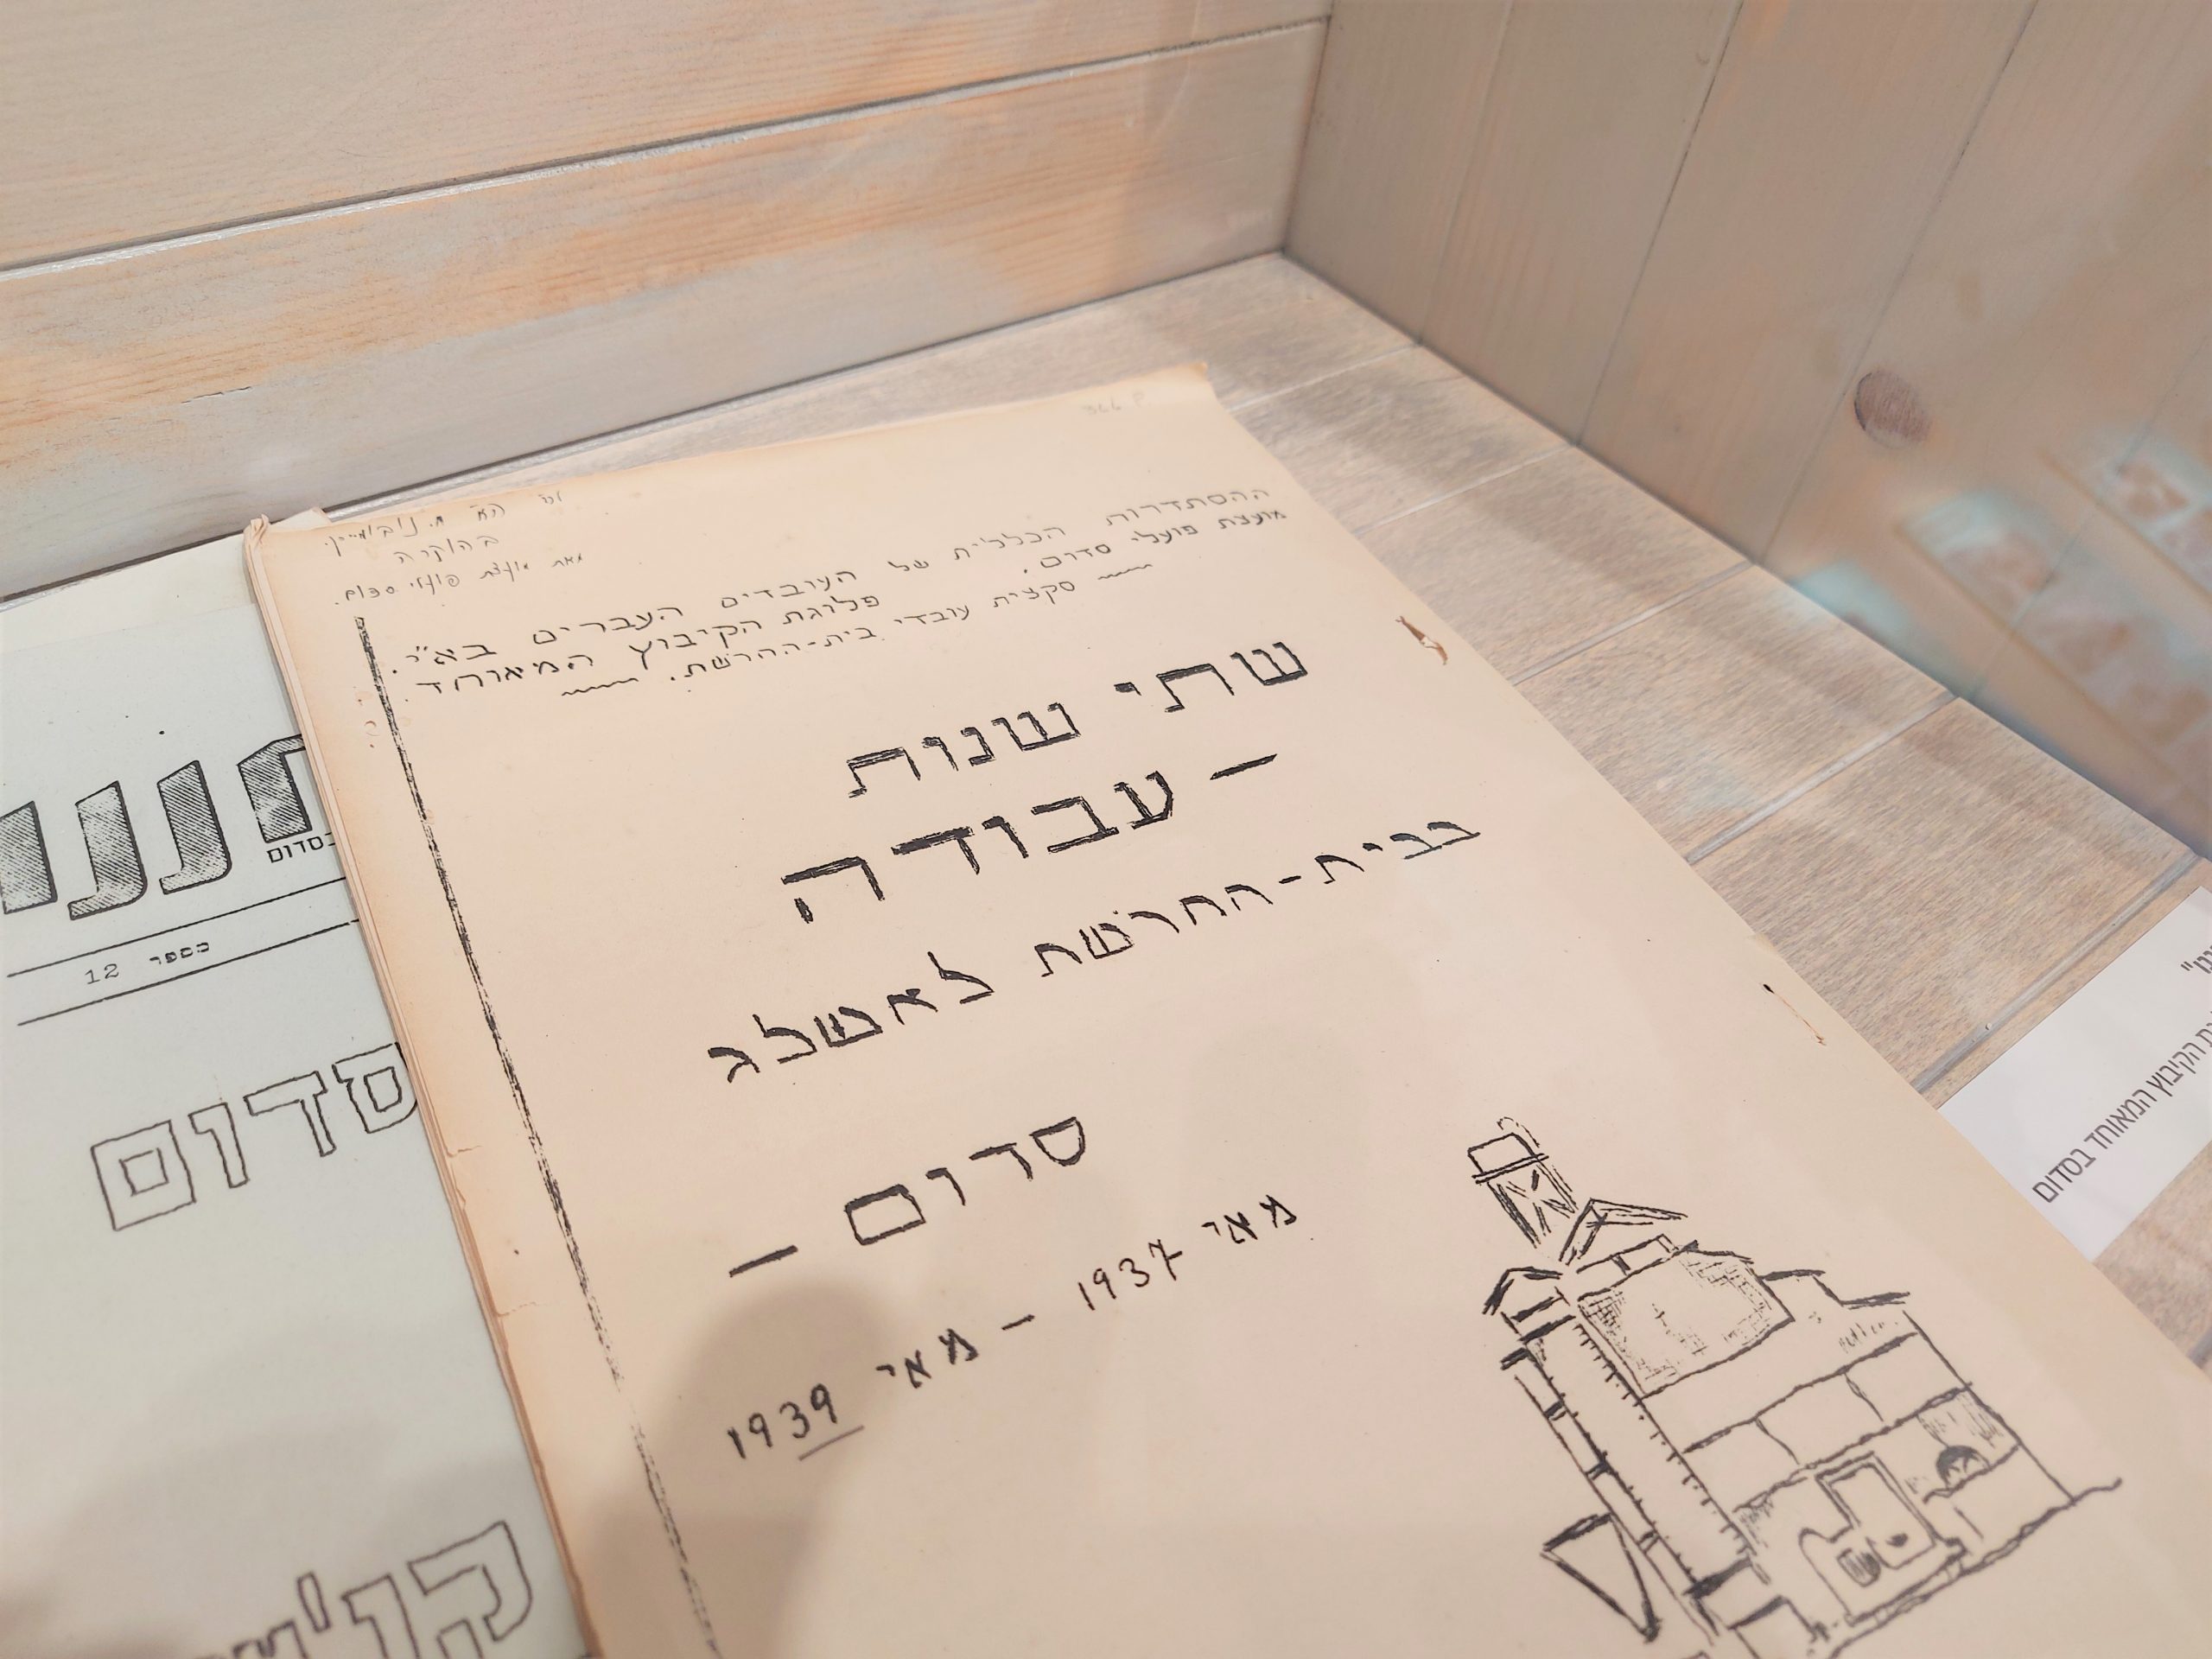 ההסתדרות הכללית של העובדים העברים בא"י.
מועצת פועלי סדום. פלוגת הקיבוץ המאוחד
סקצית עובדי בית-החרשת.
בהוקרה
מאת מועצת פועלי סדום.
שתי שנות
– עבודה
בבית-החרשת לאשלג
סדום –
מאי 1937 – מאי 1939
בסדום
מספר 12
סדום
הקיבוץ המאוחד בסדום